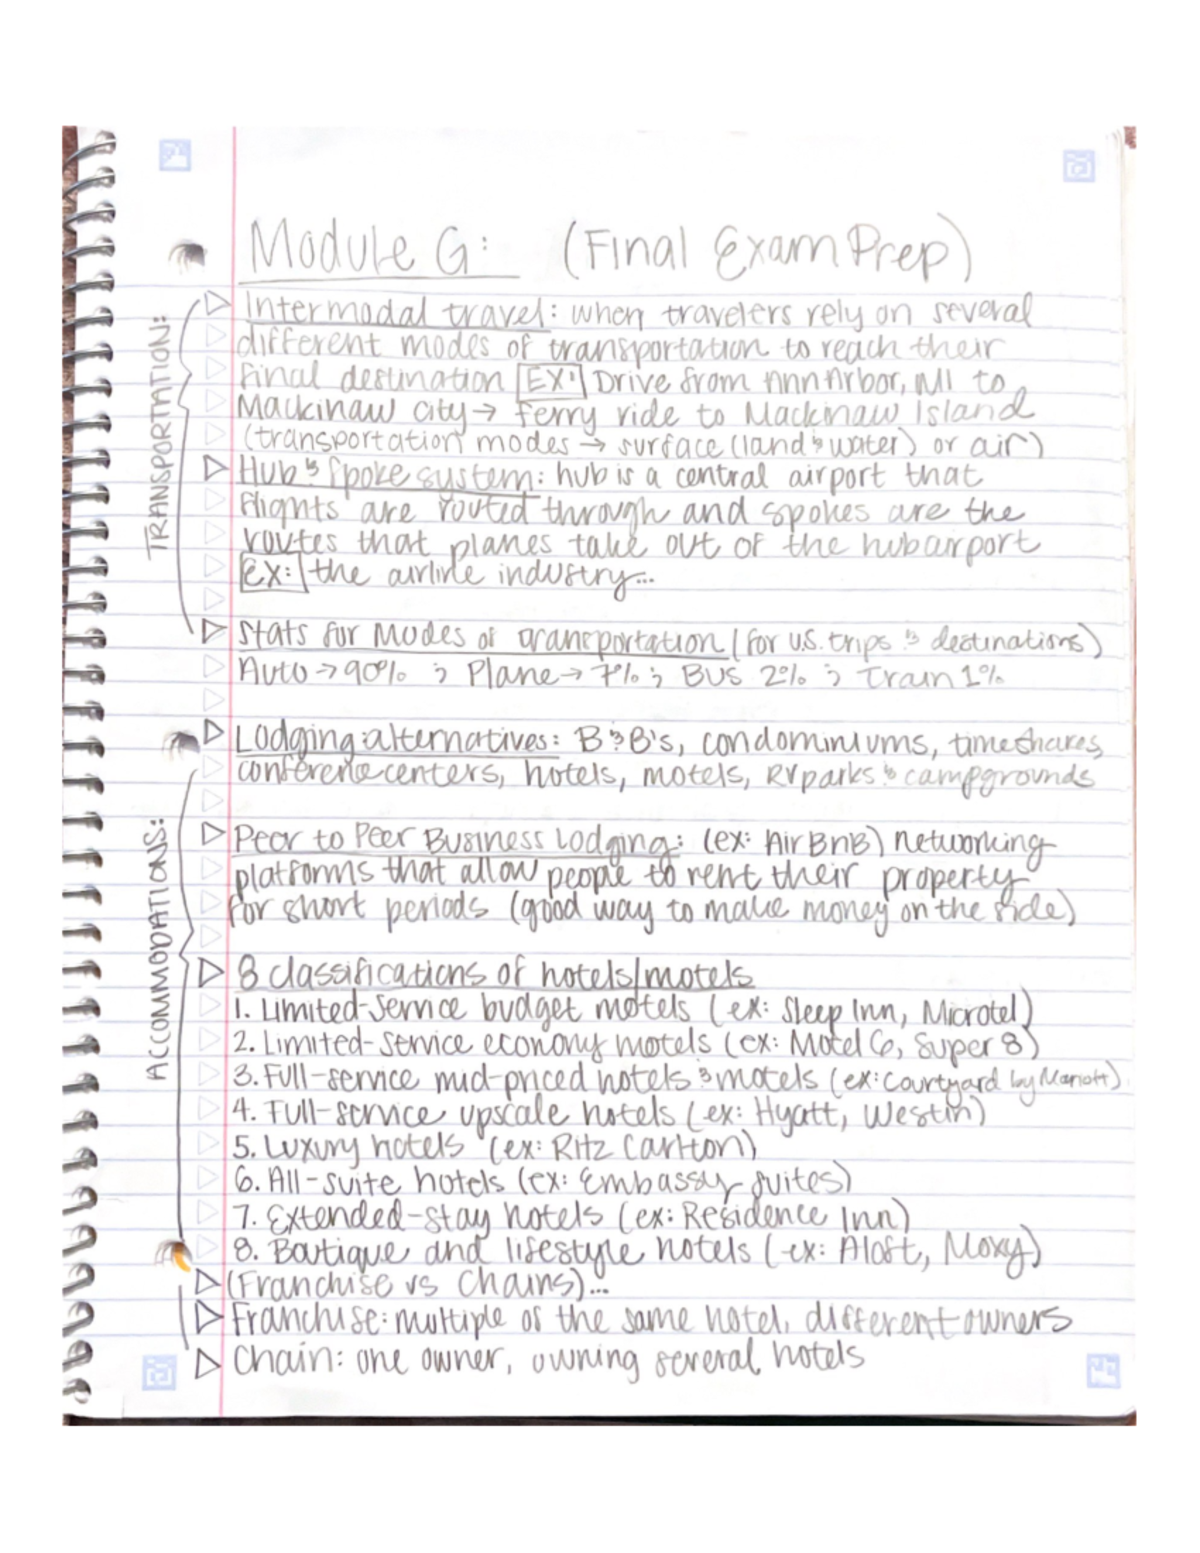 Module G: (Final Exam Prep)
TRANSPORTATION:
Intermodal travel: when travelers rely on several
different modes of transportation to reach their
final destination EX: Drive from Ann Arbor, MI to
Mackinaw city → ferry ride to Mackinaw Island
(transportation modes → surface (land & water) or air)
Hub & Spoke system: hub is a central airport that
flights are routed through and spokes are the
routes that planes take out of the hub airport
EX: the airline industry...
Stats for Modes of transportation (for U.S. trips & destinations)
Auto → 90% ; Plane → 7% ; Bus 2% ; Train 1%
ACCOMMODATIONS:
Lodging alternatives: B&B's, condominiums, timeshares,
conference centers, hotels, motels, RV parks & campgrounds
Peer to Peer Business Lodging: (ex: AirBnB) networking
platforms that allow people to rent their property
for short periods (good way to make money on the side)
8 classifications of hotels/motels
1. Limited-service budget motels (ex: Sleep Inn, Microtel)
2. Limited-service economy motels (ex: Motel 6, Super 8)
3. Full-service mid-priced hotels & motels (ex: Courtyard by Mariott)
4. Full-service upscale hotels (ex: Hyatt, Westin)
5. Luxury hotels (ex: Ritz Carlton)
6. All-suite hotels (ex: Embassy Suites)
7. Extended-stay hotels (ex: Residence Inn)
8. Boutique and lifestyle hotels (ex: Aloft, Moxy)
(Franchise vs Chains)...
Franchise: multiple of the same hotel, different owners
Chain: one owner, owning several hotels